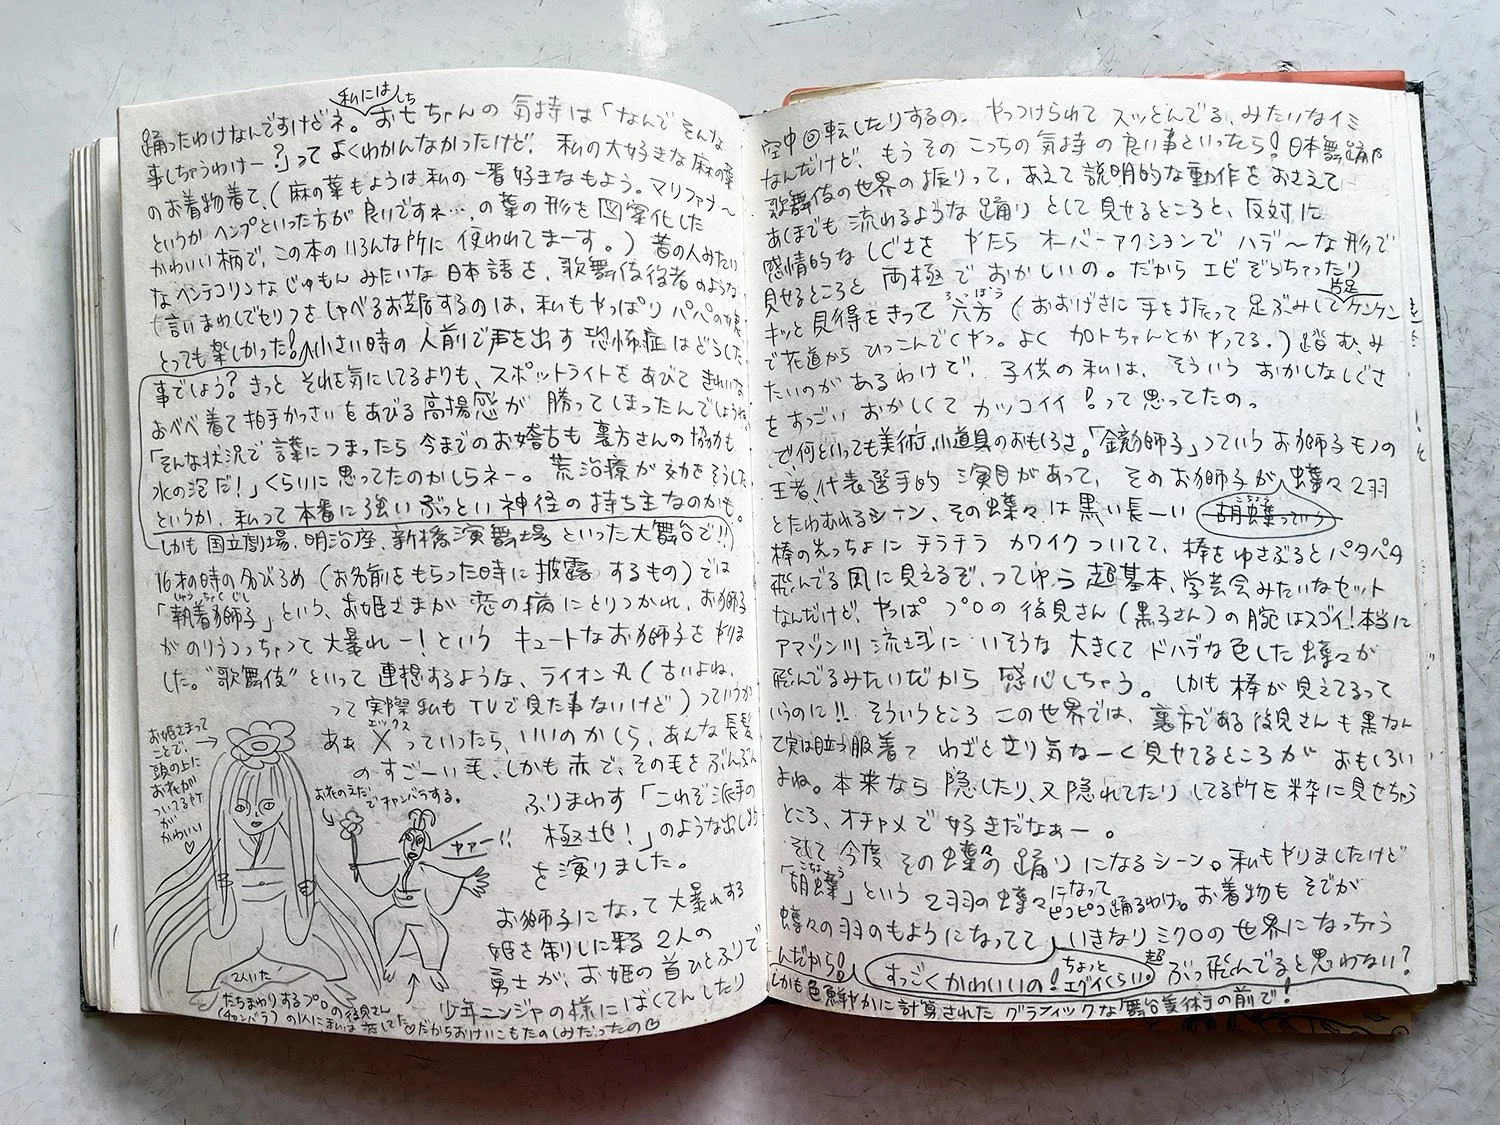 私には
踊ったわけなんですけどネ。おもちゃんの気持は「なんでそんな
事しちゃうわけー?」ってよくわかんなかったけど、私の大好きな麻の葉
のお着物着て、(麻の葉もようは、私の一番好きなもよう。マリファナ〜
というかヘンプといった方が良いですネ…、の葉の形を図案化した
かわいい柄で、この本のいろんな所に使われてまーす。)昔の人みたい
なヘンテコリンなじゅもんみたいな日本語を、歌舞伎役者のような
言いまわしでセリフをしゃべるお芝居するのは、私もやっぱりパパの娘
とっても楽しかった!小さい時の人前で声を出す恐怖症はどうした
事でしょう?きっとそれを気にしてるよりも、スポットライトをあびてきれいな
おべべ着て拍手かっさいをあびる高揚感が勝ってしまったんでしょうね。
「そんな状況で言葉につまったら今までのお稽古も裏方さんの協力も
水の泡だ!」くらいに思ってたのかしらネー。荒治療が効をそうした
というか、私って本番に強いぶっとい神経の持ち主なのかも。
しかも国立劇場、明治座、新橋演舞場といった大舞台で!!
16才の時の名びろめ(お名前をもらった時に披露するもの)では
しゅうちゃくじし
「執着獅子」という、お姫さまが恋の病にとりつかれ、お獅子
がのりうつっちゃって大暴れー!というキュートなお獅子をやりま
した。"歌舞伎"といって連想するような、ライオン丸(古いよね、
って実際私もTVで見た事ないけど)っていうか
エックス
あぁXっていったら、いいのかしら、あんな長髪
のすごーい毛、しかも赤で、その毛をぶんぶん
ふりまわす「これぞ派手の
極地!」のような出しもの
を演りました。
お獅子になって大暴れする
姫を制しに来る2人の
勇士が、お姫の首ひとふりで
少年ニンジャの様にばくてんしたり
お姫さまって
ことで、
頭の上に
お花が
ついてる所
が
かわいい
♡
お花のえだ
でチャンバラする。
ヤァー!!
2人いた
たちまわりするプロの後見さん
(チャンバラ)の1人に私は恋してた♡だからおけいこもたのしみだったの♡
空中回転したりするの。やっつけられてスッとんでる、みたいなイミ
なんだけど、もうそのこっちの気持の良い事といったら!日本舞踊や
歌舞伎の世界の振りって、あえて説明的な動作をおさえて
あくまでも流れるような踊りとして見せるところと、反対に
感情的なしぐさをやたらオーバーアクションでハデ〜な形で
見せるところと両極でおかしいの。だからエビぞっちゃったり
ろっぽう
片足
キッと見得をきって六方(おおげさに手を振って足ぶみしてケンケン
で花道からひっこんでくやつ。よく加トちゃんとかやってる。)踏む、み
たいのがあるわけで、子供の私は、そういうおかしなしぐさ
をすっごいおかしくてカッコイイ!って思ってたの。
で何といっても美術、小道具のおもしろさ。「鏡獅子」っていうお獅子モノの
王者、代表選手的演目があって、そのお獅子が蝶々2羽
こちょう
胡蝶っていう
とたわむれるシーン、その蝶々は黒い長ーい
棒の先っちょにチラチラカワイクついてて、棒をゆさぶるとパタパタ
飛んでる風に見えるぞ、ってゆう超基本、学芸会みたいなセット
なんだけど、やっぱプロの後見さん(黒子さん)の腕はスゴイ!本当に
アマゾン川流域にいそうな大きくてドハデな色した蝶々が
飛んでるみたいだから感心しちゃう。しかも棒が見えてるって
いうのに!!そういうところこの世界では、裏方である後見さんも黒なん
て実は目立つ服着てわざと立り気なーく見せてるところがおもしろい
よね。本来なら隠したり、又隠れてたりしてる所を粋に見せちゃう
ところ、オチャメで好きだなぁー。
そして今度その蝶々の踊りになるシーン。私もやりましたけど
こちょう
「胡蝶」という2羽の蝶々になって
ピコピコ踊るわけ。お着物もそでが
蝶々の羽のもようになってていきなりミクロの世界になっちゃう
んだから!すっごくかわいいの!ちょっとエグイくらい。超ぶっ飛んでると思わない?
しかも色鮮やかに計算されたグラフィックな「舞台美術」の前で!